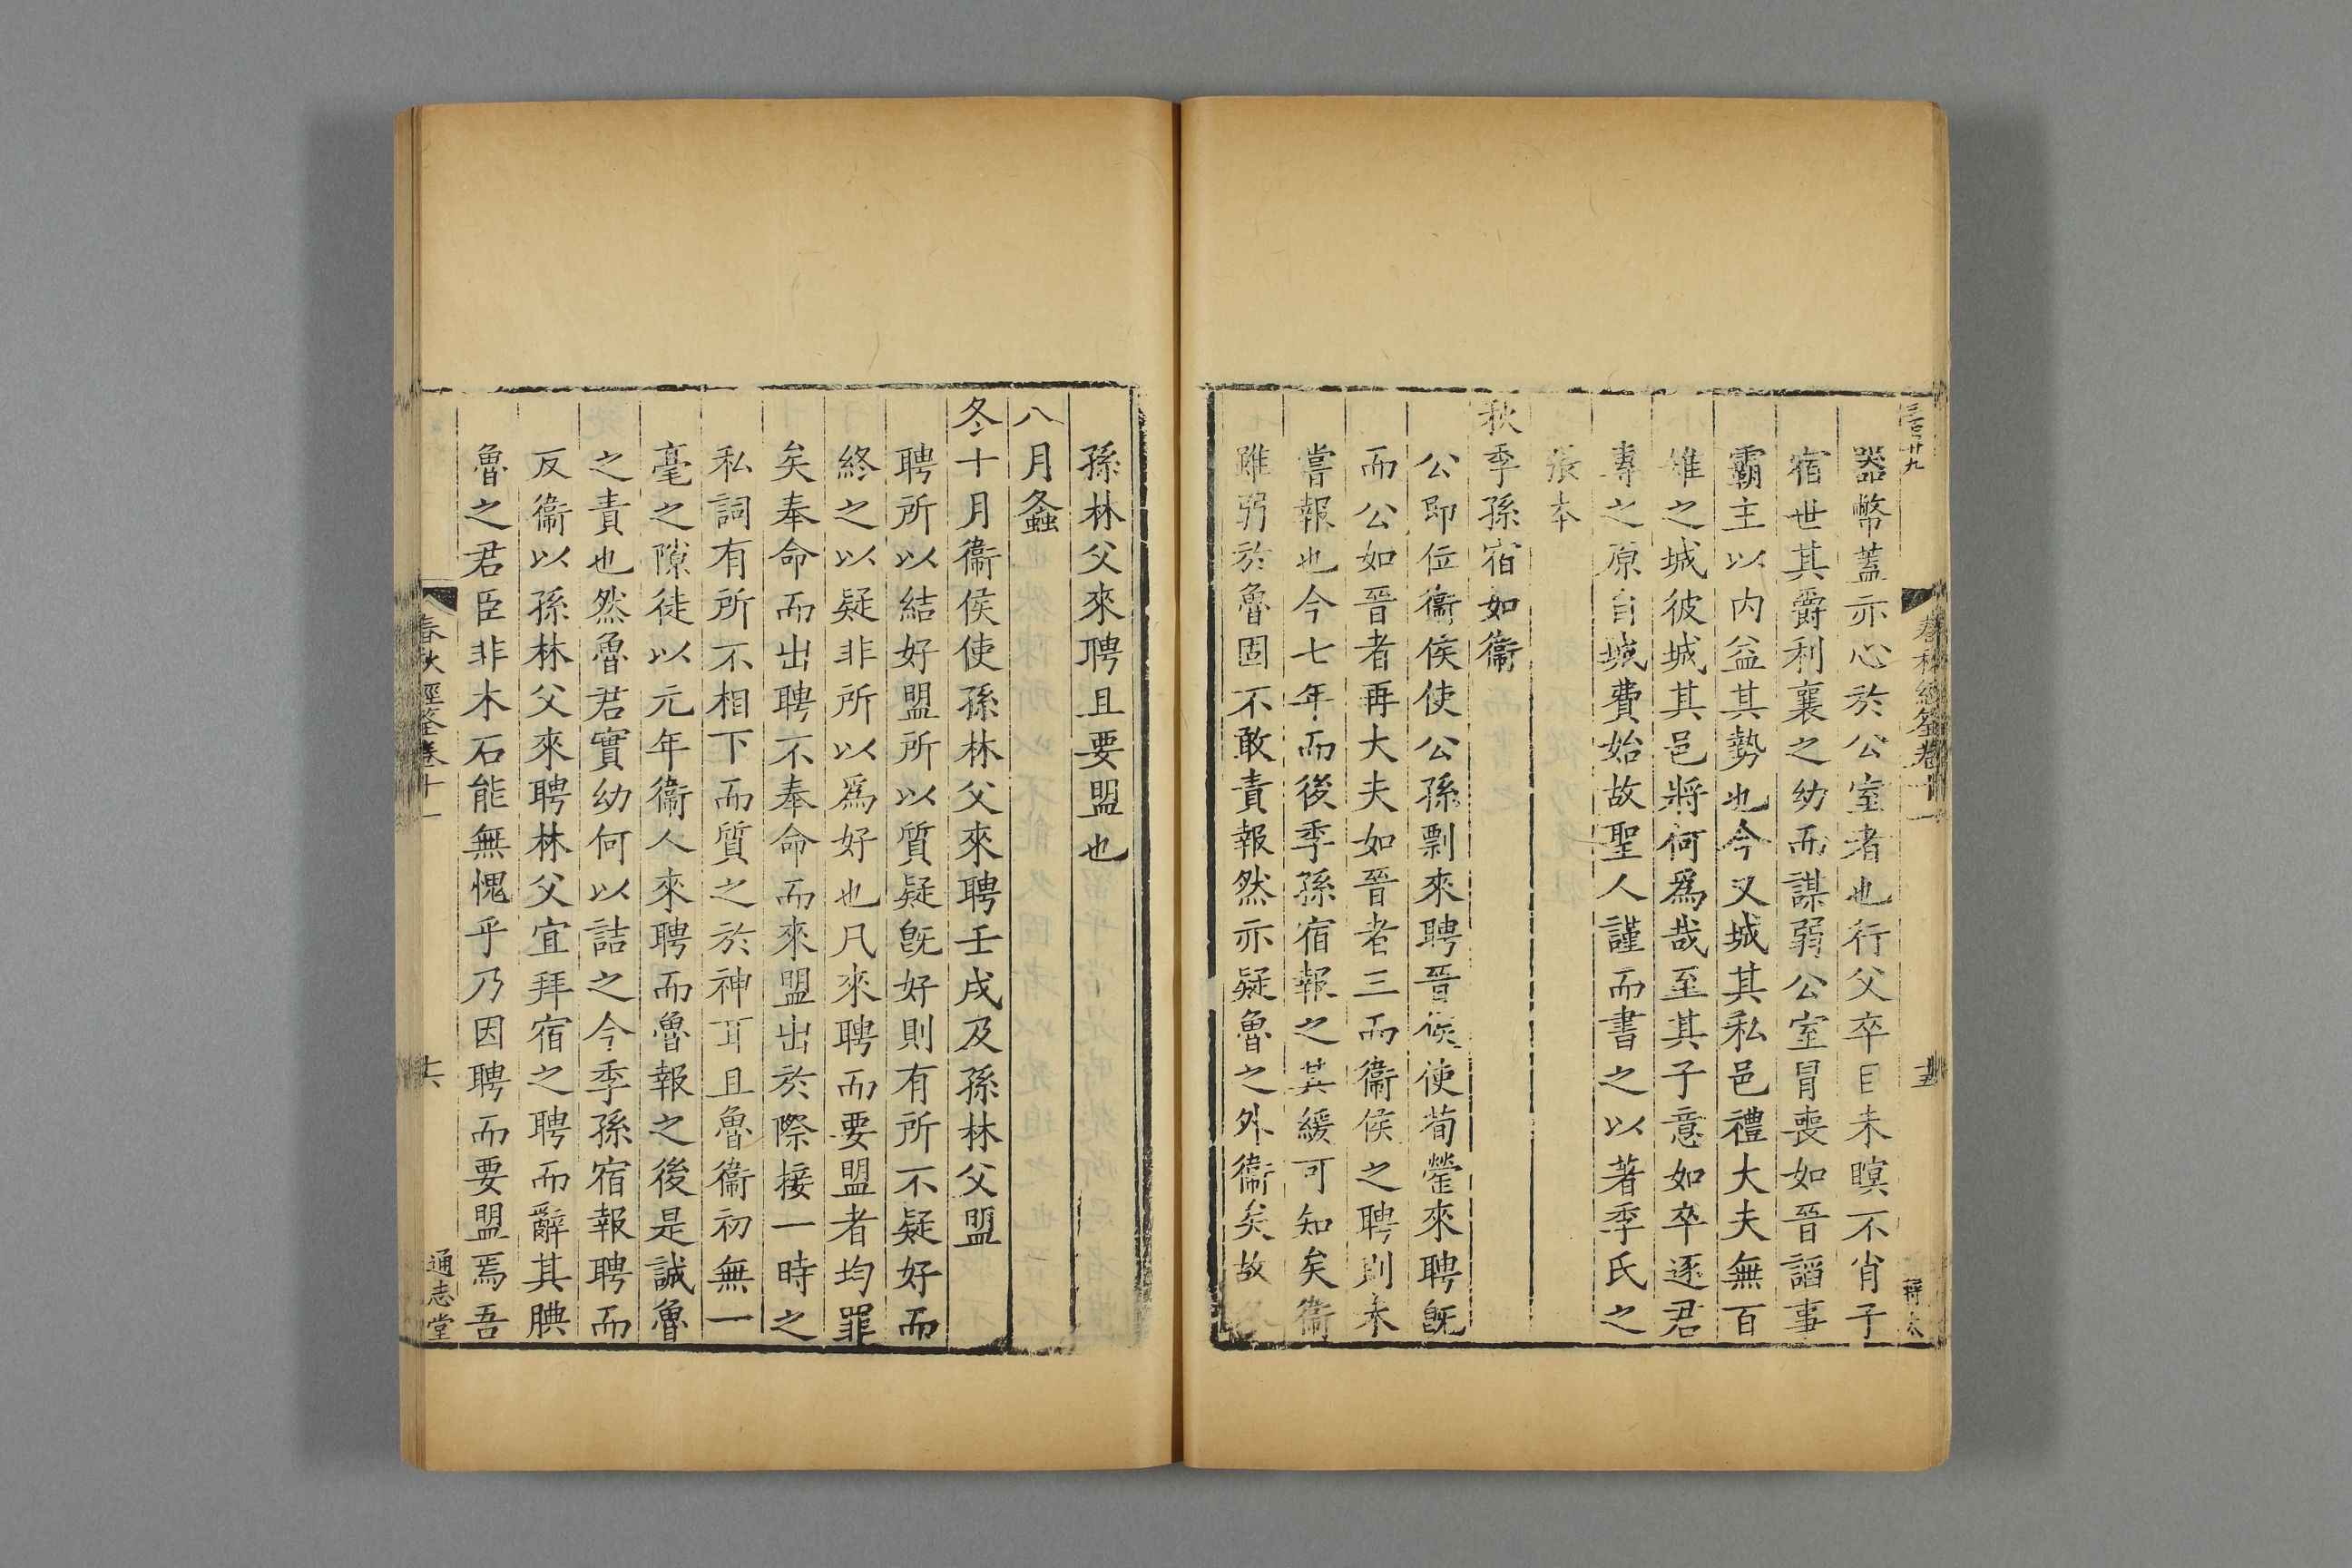 春秋經筌卷十一
器幣蓋亦心於公室者也行父卒目未瞑不肖子
宿世其爵利襄之幼而謀弱公室冐喪如晉謟事
霸主以内益其勢也今又城其私邑禮大夫無百
雉之城彼城其邑將何爲哉至其子意如卒逐君
專之原自城費始故聖人謹而書之以著季氏之
張本
秋季孫宿如衞
公即位衞侯使公孫剽來聘晉侯使荀罃來聘旣
而公如晉者再大夫如晉者三而衞侯之聘則未
嘗報也今七年而後季孫宿報之其緩可知矣衞
雖弱於魯固不敢責報然亦疑魯之外衞矣故
孫林父來聘且要盟也
八月螽
冬十月衞侯使孫林父來聘壬戌及孫林父盟
聘所以結好盟所以質疑旣好則有所不疑好而
終之以疑非所以爲好也凡來聘而要盟者均罪
矣奉命而出聘不奉命而來盟出於際接一時之
私詞有所不相下而質之於神耳且魯衞初無一
毫之隙徒以元年衞人來聘而魯報之後是誠魯
之責也然魯君實幼何以詰之今季孫宿報聘而
反衞以孫林父來聘林父宜拜宿之聘而辭其腆
魯之君臣非木石能無愧乎乃因聘而要盟焉吾
春秋經筌卷十一
十六
通志堂